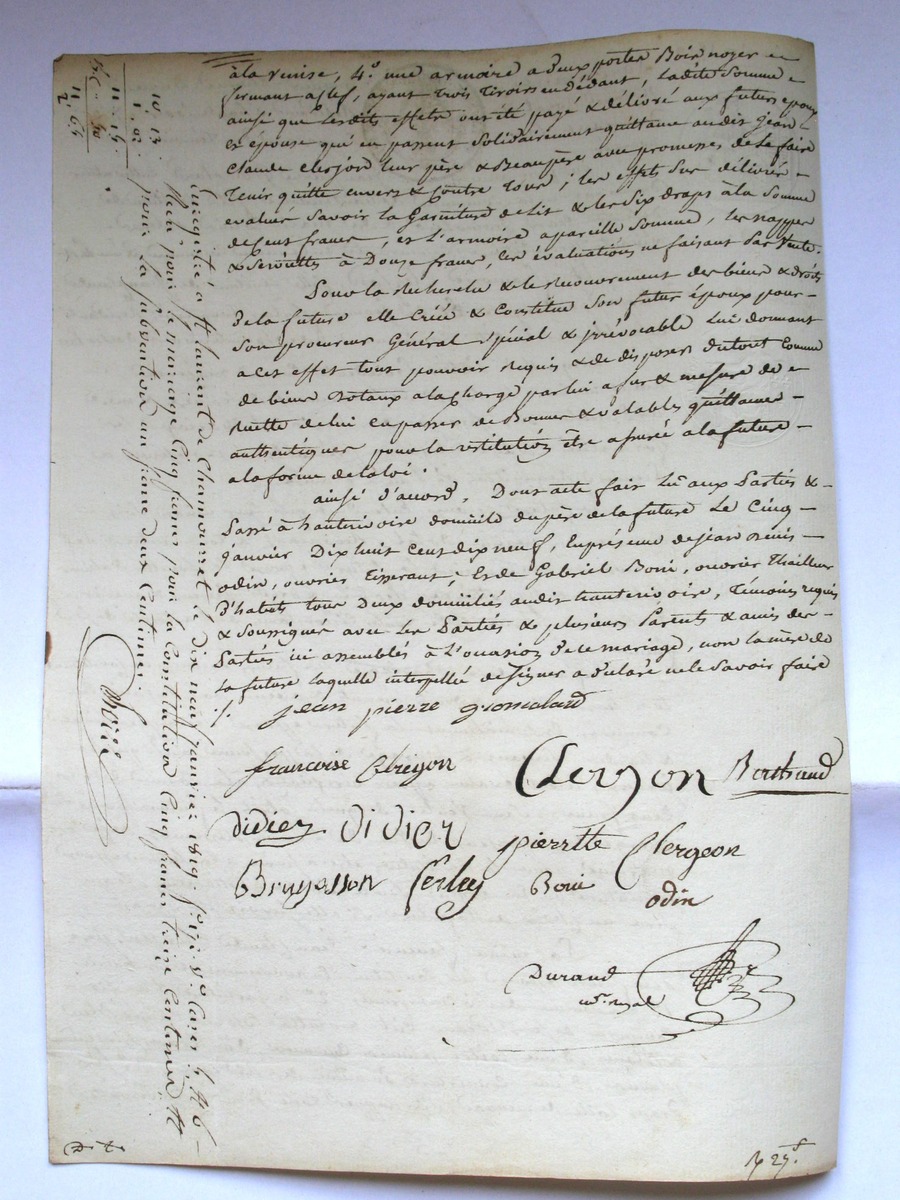 à la venise, 4.° une armoire a deux portes Bois noyer
fermant a clef, ayant trois tiroirs en dédant, Ladite Somme
ainsi que lesdits effets ont été payé & délivré aux futurs epoux
et épouse qui en passent Solidairement quittance audit jean
Claude Clerjon leur père & Beaupère avec promesses de le faire
Tenir quitte envers & contre tous; les effets Sus délivrés
evalués Savoir la Garniture de Lit & les Six draps à la Somme
de Cent francs, et l'armoire a pareille Somme, les nappes
& Serviettes à Douze francs, Ces évaluations ne faisant pas Vente.
Pour la recherche & le recouvrement des biens & droits
de la future elle Créé & Constitue Son futur époux pour
Son procureur Général Spécial & irrévocable Lui donnant
a cet effet tout pouvoir requis & de disposer du tout Comme
de biens dotaux a la charge par lui a fur & mesure de
recette de lui en passer de Bonnes & valables quittances
authentiques pour la restitution être assurée a la future
a la forme de la loi.
ainsi d'accord, Dont acte fait lu aux Parties &
Passé à hauterivoire domicile du père de la future Le Cinq
janvier Dix huit Cent dix neuf, En présence de jean denis
odin, ouvrier Tisserant; Et de Gabriel Boni, ouvrier Thailleur
d'habits tous deux domiciliés audit hauterivoire, Témoins requis
& Soussignés avec Les Parties & plusieurs Parents & amis des
Parties ici assemblés à l'occasion de ce mariage, non la mère de
la future laquelle interpellée de Signer a déclaré ne le Savoir faire
jean pierre
francoise Clrejon Clerjon Berthaud
Didier Didier pierrtte Clergeon
Bruyasson Ferley Boni odin
Durand
n.re royal
Enregistré a St laurent de Chamousset le dix neuf janvier 1819. f.° 171. V.° Cases 5. et 6
Reçu pour le mariage Cinq francs pour la Constitution Cinq francs treize Centimes et
pour la Subvention un franc deux Centimes.
10. 13.
1. 02.
11. 15.